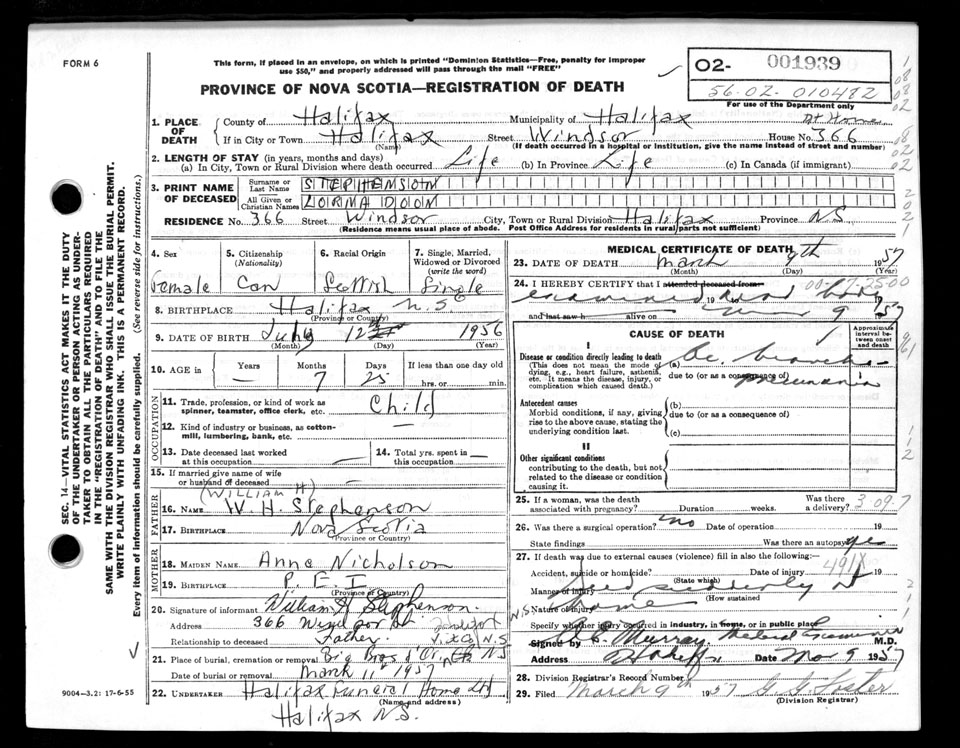 FORM 6
This form, if placed in an envelope, on which is printed "Dominion Statistics—Free, penalty for improper
use $50," and properly addressed will pass through the mail "FREE"
02- 001939
56-02-010482
For use of the Department only
PROVINCE OF NOVA SCOTIA—REGISTRATION OF DEATH
1. PLACE OF DEATH
County of Halifax Municipality of Halifax At Home
If in City or Town Halifax Street Windsor House No. 366
(Name) (If death occurred in a hospital or institution, give the name instead of street and number)
2. LENGTH OF STAY (in years, months and days)
(a) In City, Town or Rural Division where death occurred Life (b) In Province Life (c) In Canada (if immigrant)
3. PRINT NAME OF DECEASED
Surname or Last Name STEPHENSON
All Given or Christian Names LORNA DOON
RESIDENCE No. 366 Street Windsor City, Town or Rural Division Halifax Province N.S
(Residence means usual place of abode. Post Office Address for residents in rural parts not sufficient)
4. Sex Female
5. Citizenship (Nationality) Can
6. Racial Origin Scottish
7. Single, Married, Widowed or Divorced (write the word) Single
8. BIRTHPLACE Halifax N.S
(Province or Country)
9. DATE OF BIRTH July 12 1956
(Month) (Day) (Year)
10. AGE in Years — Months 7 Days 25 If less than one day old hrs. or min.
OCCUPATION
11. Trade, profession, or kind of work as spinner, teamster, office clerk, etc. Child
12. Kind of industry or business, as cotton-mill, lumbering, bank, etc. —
13. Date deceased last worked at this occupation
14. Total yrs. spent in this occupation —
15. If married give name of wife or husband of deceased
(WILLIAM H)
FATHER
16. NAME W. H. Stephenson
17. BIRTHPLACE Nova Scotia
(Province or Country)
MOTHER
18. MAIDEN NAME Anna Nicholson
19. BIRTHPLACE P.E.I
(Province or Country)
20. Signature of informant William H Stephenson.
Address 366 Windsor St
Relationship to deceased Father. N.S
21. Place of burial, cremation or removal Big Bras d'Or, N.S
Date of burial or removal March 11th 1957
22. UNDERTAKER Halifax Funeral Home Ltd
(Name and address)
Halifax N.S.
MEDICAL CERTIFICATE OF DEATH
23. DATE OF DEATH March 9th 1957
(Month) (Day) (Year)
24. I HEREBY CERTIFY that I attended deceased from
examined dead body
and last saw h alive on 9 1957
CAUSE OF DEATH
Approximate interval between onset and death
I
Disease or condition directly leading to death (This does not mean the mode of dying, e.g., heart failure, asthenia, etc. It means the disease, injury, or complication which caused death.)
(a) Ac. Broncho-
due to (or as a consequence of) pneumonia
Antecedent causes
Morbid conditions, if any, giving rise to the above cause, stating the underlying condition last.
(b)
due to (or as a consequence of)
(c)
II
Other significant conditions contributing to the death, but not related to the disease or condition causing it.
25. If a woman, was the death associated with pregnancy? Duration weeks. Was there a delivery?
3-09-7
26. Was there a surgical operation? no Date of operation 19
State findings Was there an autopsy yes
27. If death was due to external causes (violence) fill in also the following:
491X
Accident, suicide or homicide? Date of injury 19
(State which)
Manner of injury Died suddenly at
(How sustained)
Nature of injury home
Specify whether injury occurred in industry, in home, or in public place
Signed by Murray, Medical Examiner M.D.
Address Halifax Date Mar 9 1957
28. Division Registrar's Record Number
29. Filed March 9th 1957 Foster
(Division Registrar)
SEC. 14—VITAL STATISTICS ACT MAKES IT THE DUTY
OF THE UNDERTAKER OR PERSON ACTING AS UNDER-
TAKER TO OBTAIN ALL THE PARTICULARS REQUIRED
IN THE "REGISTRATION OF DEATH" AND TO FILE THE
SAME WITH THE DIVISION REGISTRAR WHO SHALL ISSUE THE BURIAL PERMIT.
WRITE PLAINLY WITH UNFADING INK. THIS IS A PERMANENT RECORD.
Every item of information should be carefully supplied. (See reverse side for instructions.)
9004—3.2: 17-6-55